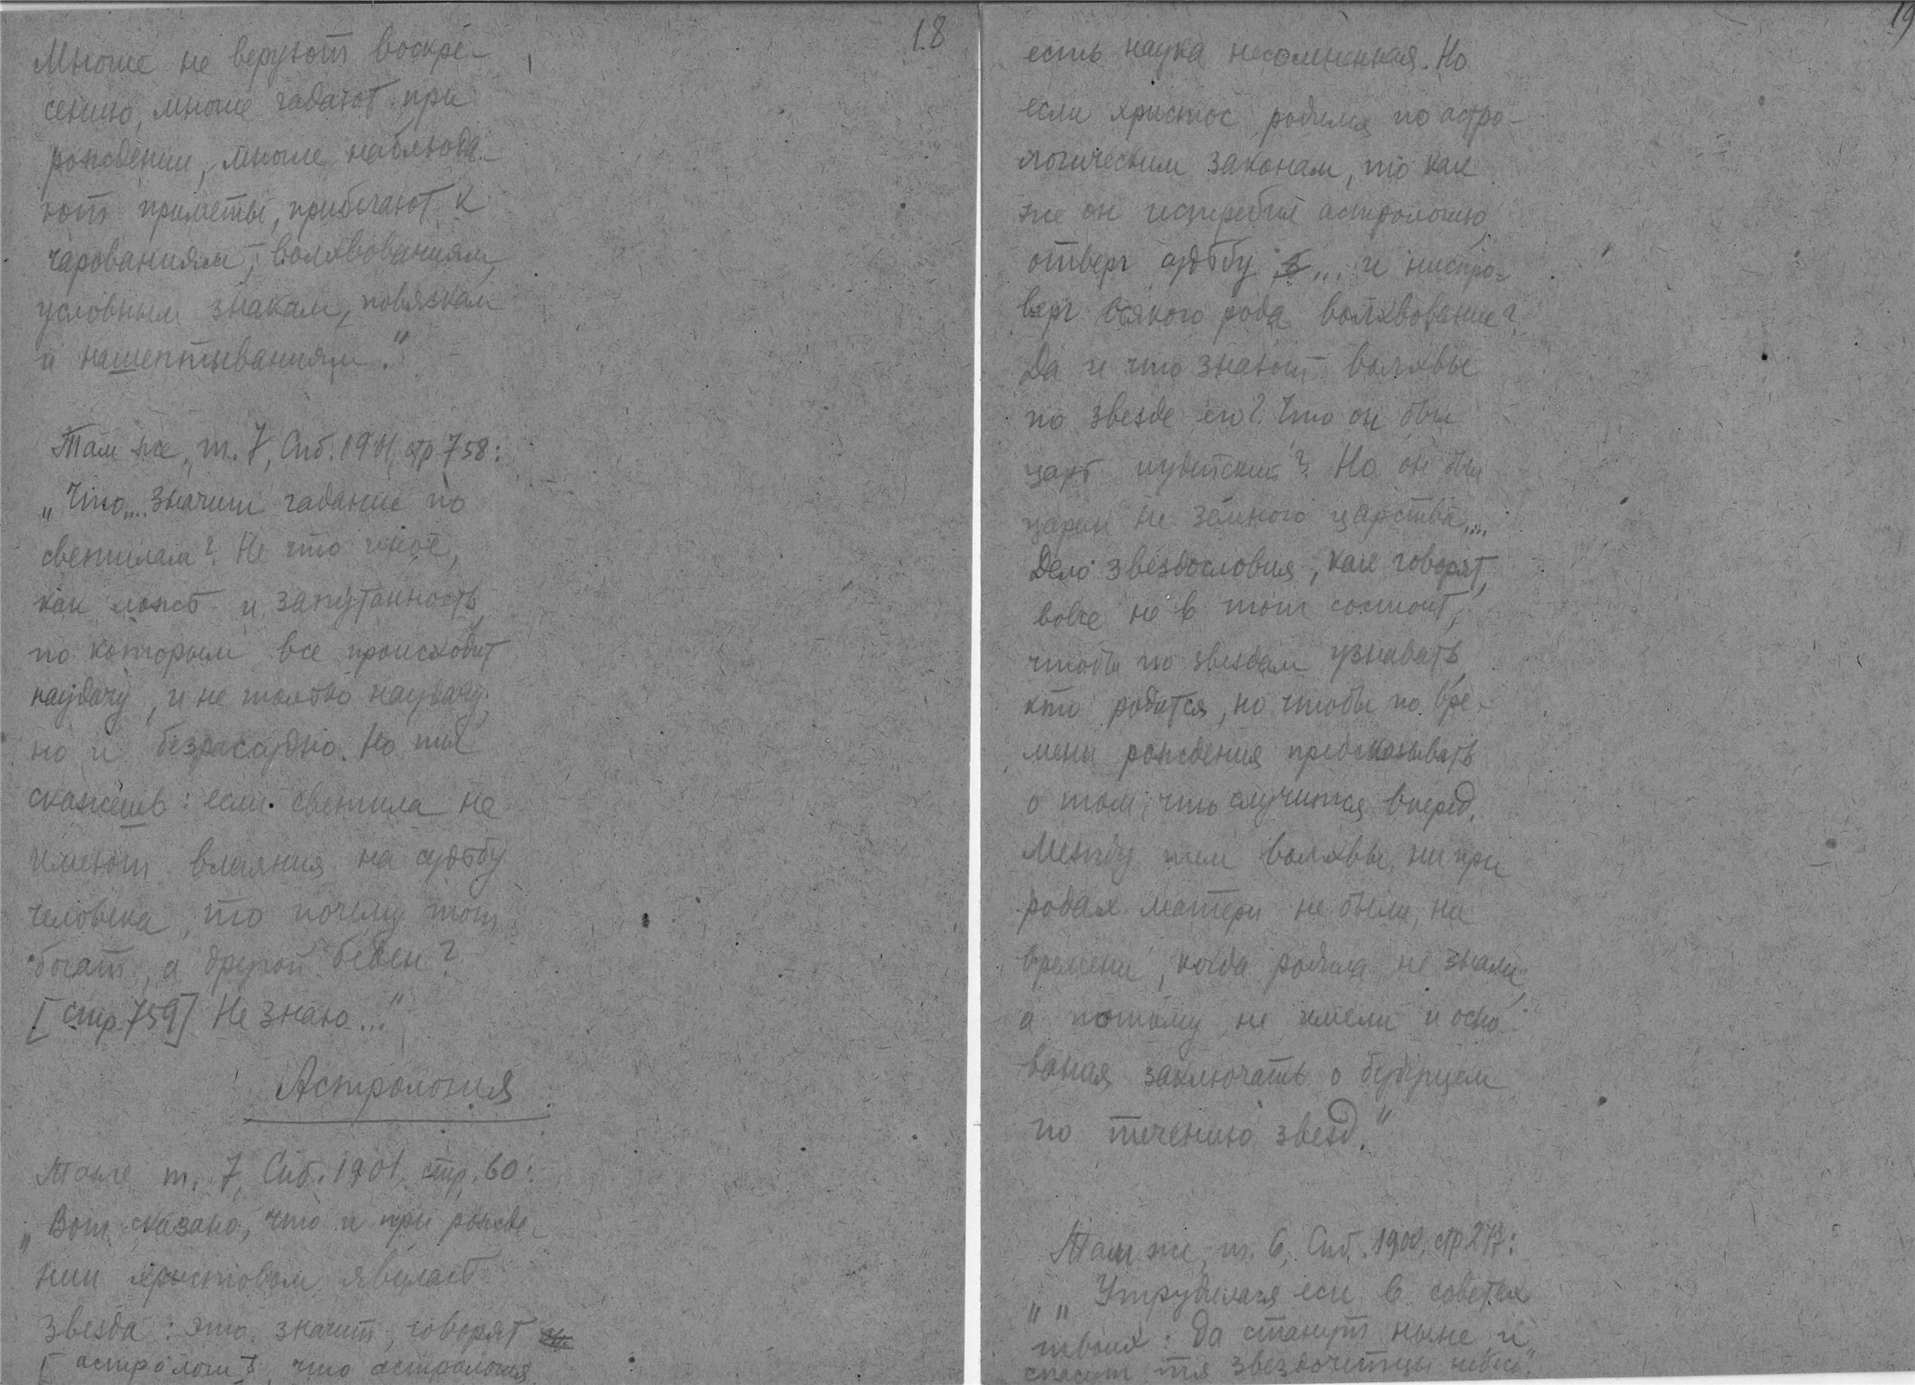 18
Многие не веруют воскре-
сению, многие гадают при
рождении, многие наблюда-
ют приметы, прибегают к
чарованиям, волхвованиям,
условным знакам, повязкам
и нашептываниям."
Там же, т. 7, Спб. 1901, стр 758:
„Что... значит гадание по
светилам? Не что иное,
как ложь и запутанность,
по которым все происходит
наудачу, и не только наудачу,
но и безрассудно. Но ты
скажешь: если светила не
имеют влияния на судьбу
человека, то почему тот
богат, а другой беден?
[стр 759] Не знаю..."
Астрология
Тоже т. 7, Спб. 1901, стр. 60:
„Вот сказано, что и при рожде-
нии христовом явилась
звезда: это значит, говорят
[астрологи], что астрология
19
есть наука несомненная. Но
если христос родился по астро-
логическим законам, то как
же он истребил астрологию,
отверг судьбу ... и ниспро-
верг всякого рода волхвование?
Да и что знают волхвы
по звезде его? Что он был
царь иудейский? Но он был
царем не земного царства....
Дело звездословия, как говорят,
вовсе не в том состоит,
чтобы по звездам узнавать,
кто родится, но чтобы по вре-
мени рождения предсказывать
о том, что случится вперед.
Между тем волхвы ни при
родах матери не были, ни
времени, когда родила, не знали,
а потому не имели и осно-
вания заключать о будущем
по течению звезд."
Там же, т. 6, Спб. 1900, стр 277:
„„Утрудилася еси в советех
твоих: да станут ныне и
спасут тя звездочетцы небесе"